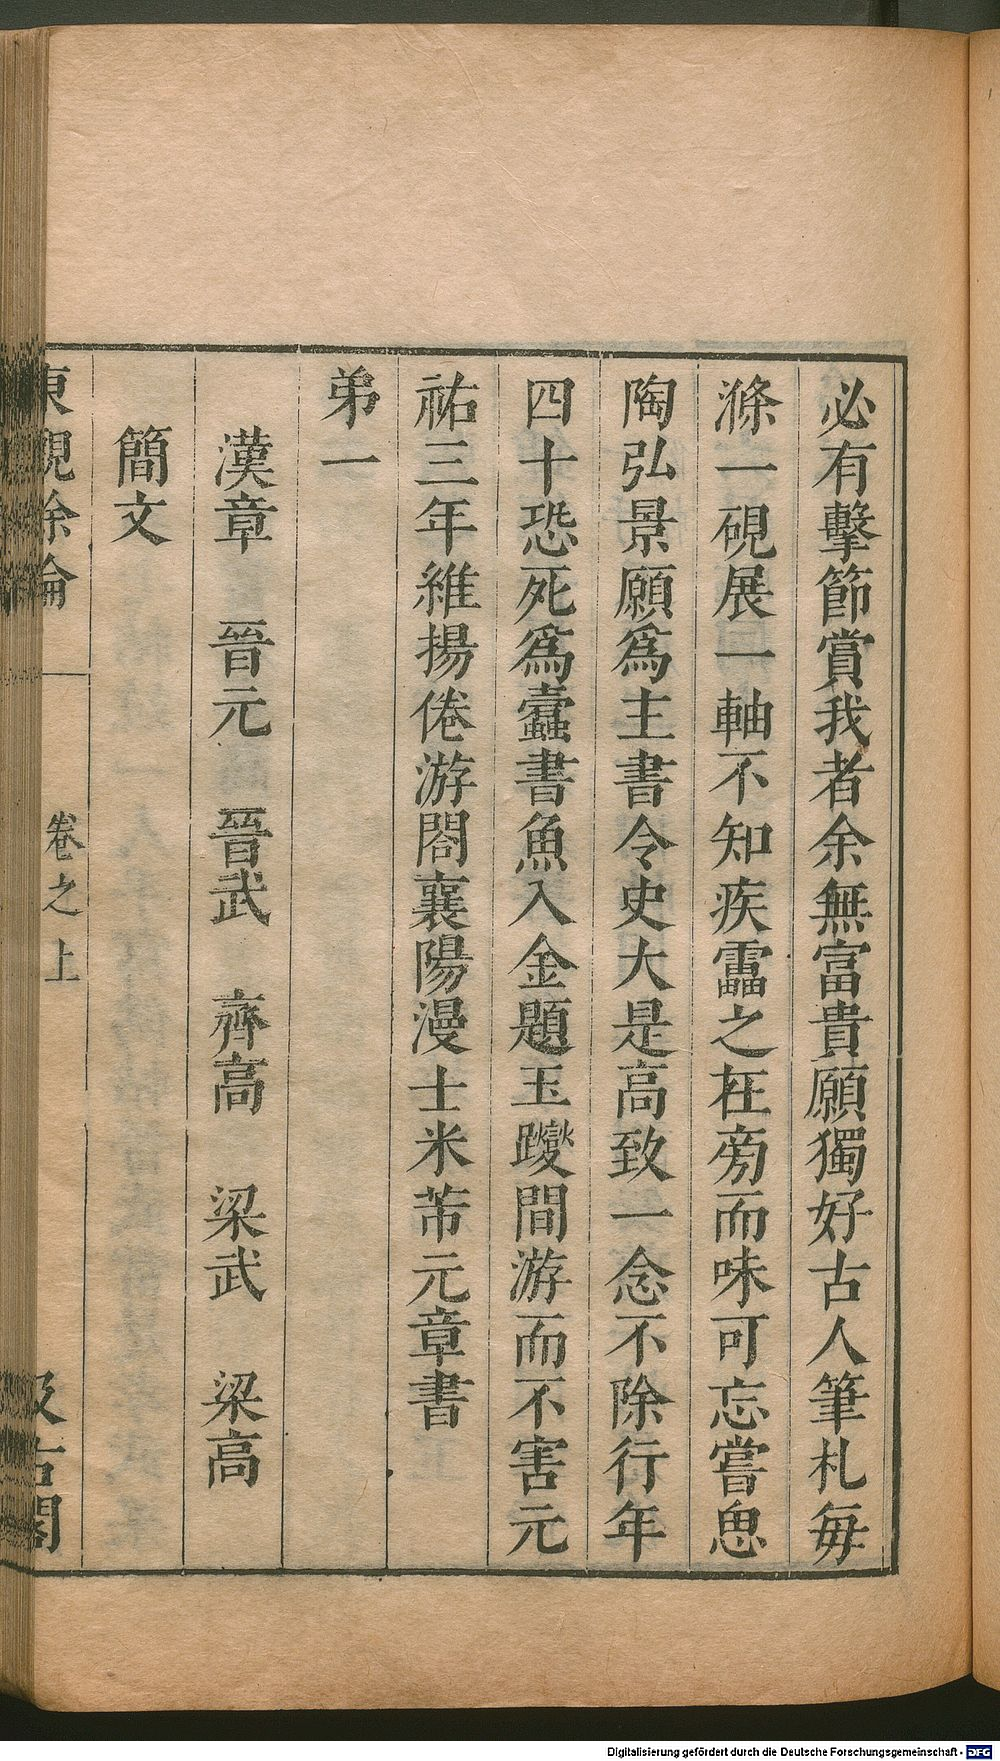 必有擊節賞我者余無富貴願獨好古人筆札每
滌一硯展一軸不知疾靁之在旁而味可忘嘗思
陶弘景願爲主書令史大是高致一念不除行年
四十恐死爲蠹書魚入金題玉躞間游而不害元
祐三年維揚倦游閤襄陽漫士米芾元章書
弟一
漢章　晉元　晉武　齊高　梁武　梁高
簡文
東觀餘論　卷之上　汲古閣
Digitalisierung gefördert durch die Deutsche Forschungsgemeinschaft - DFG